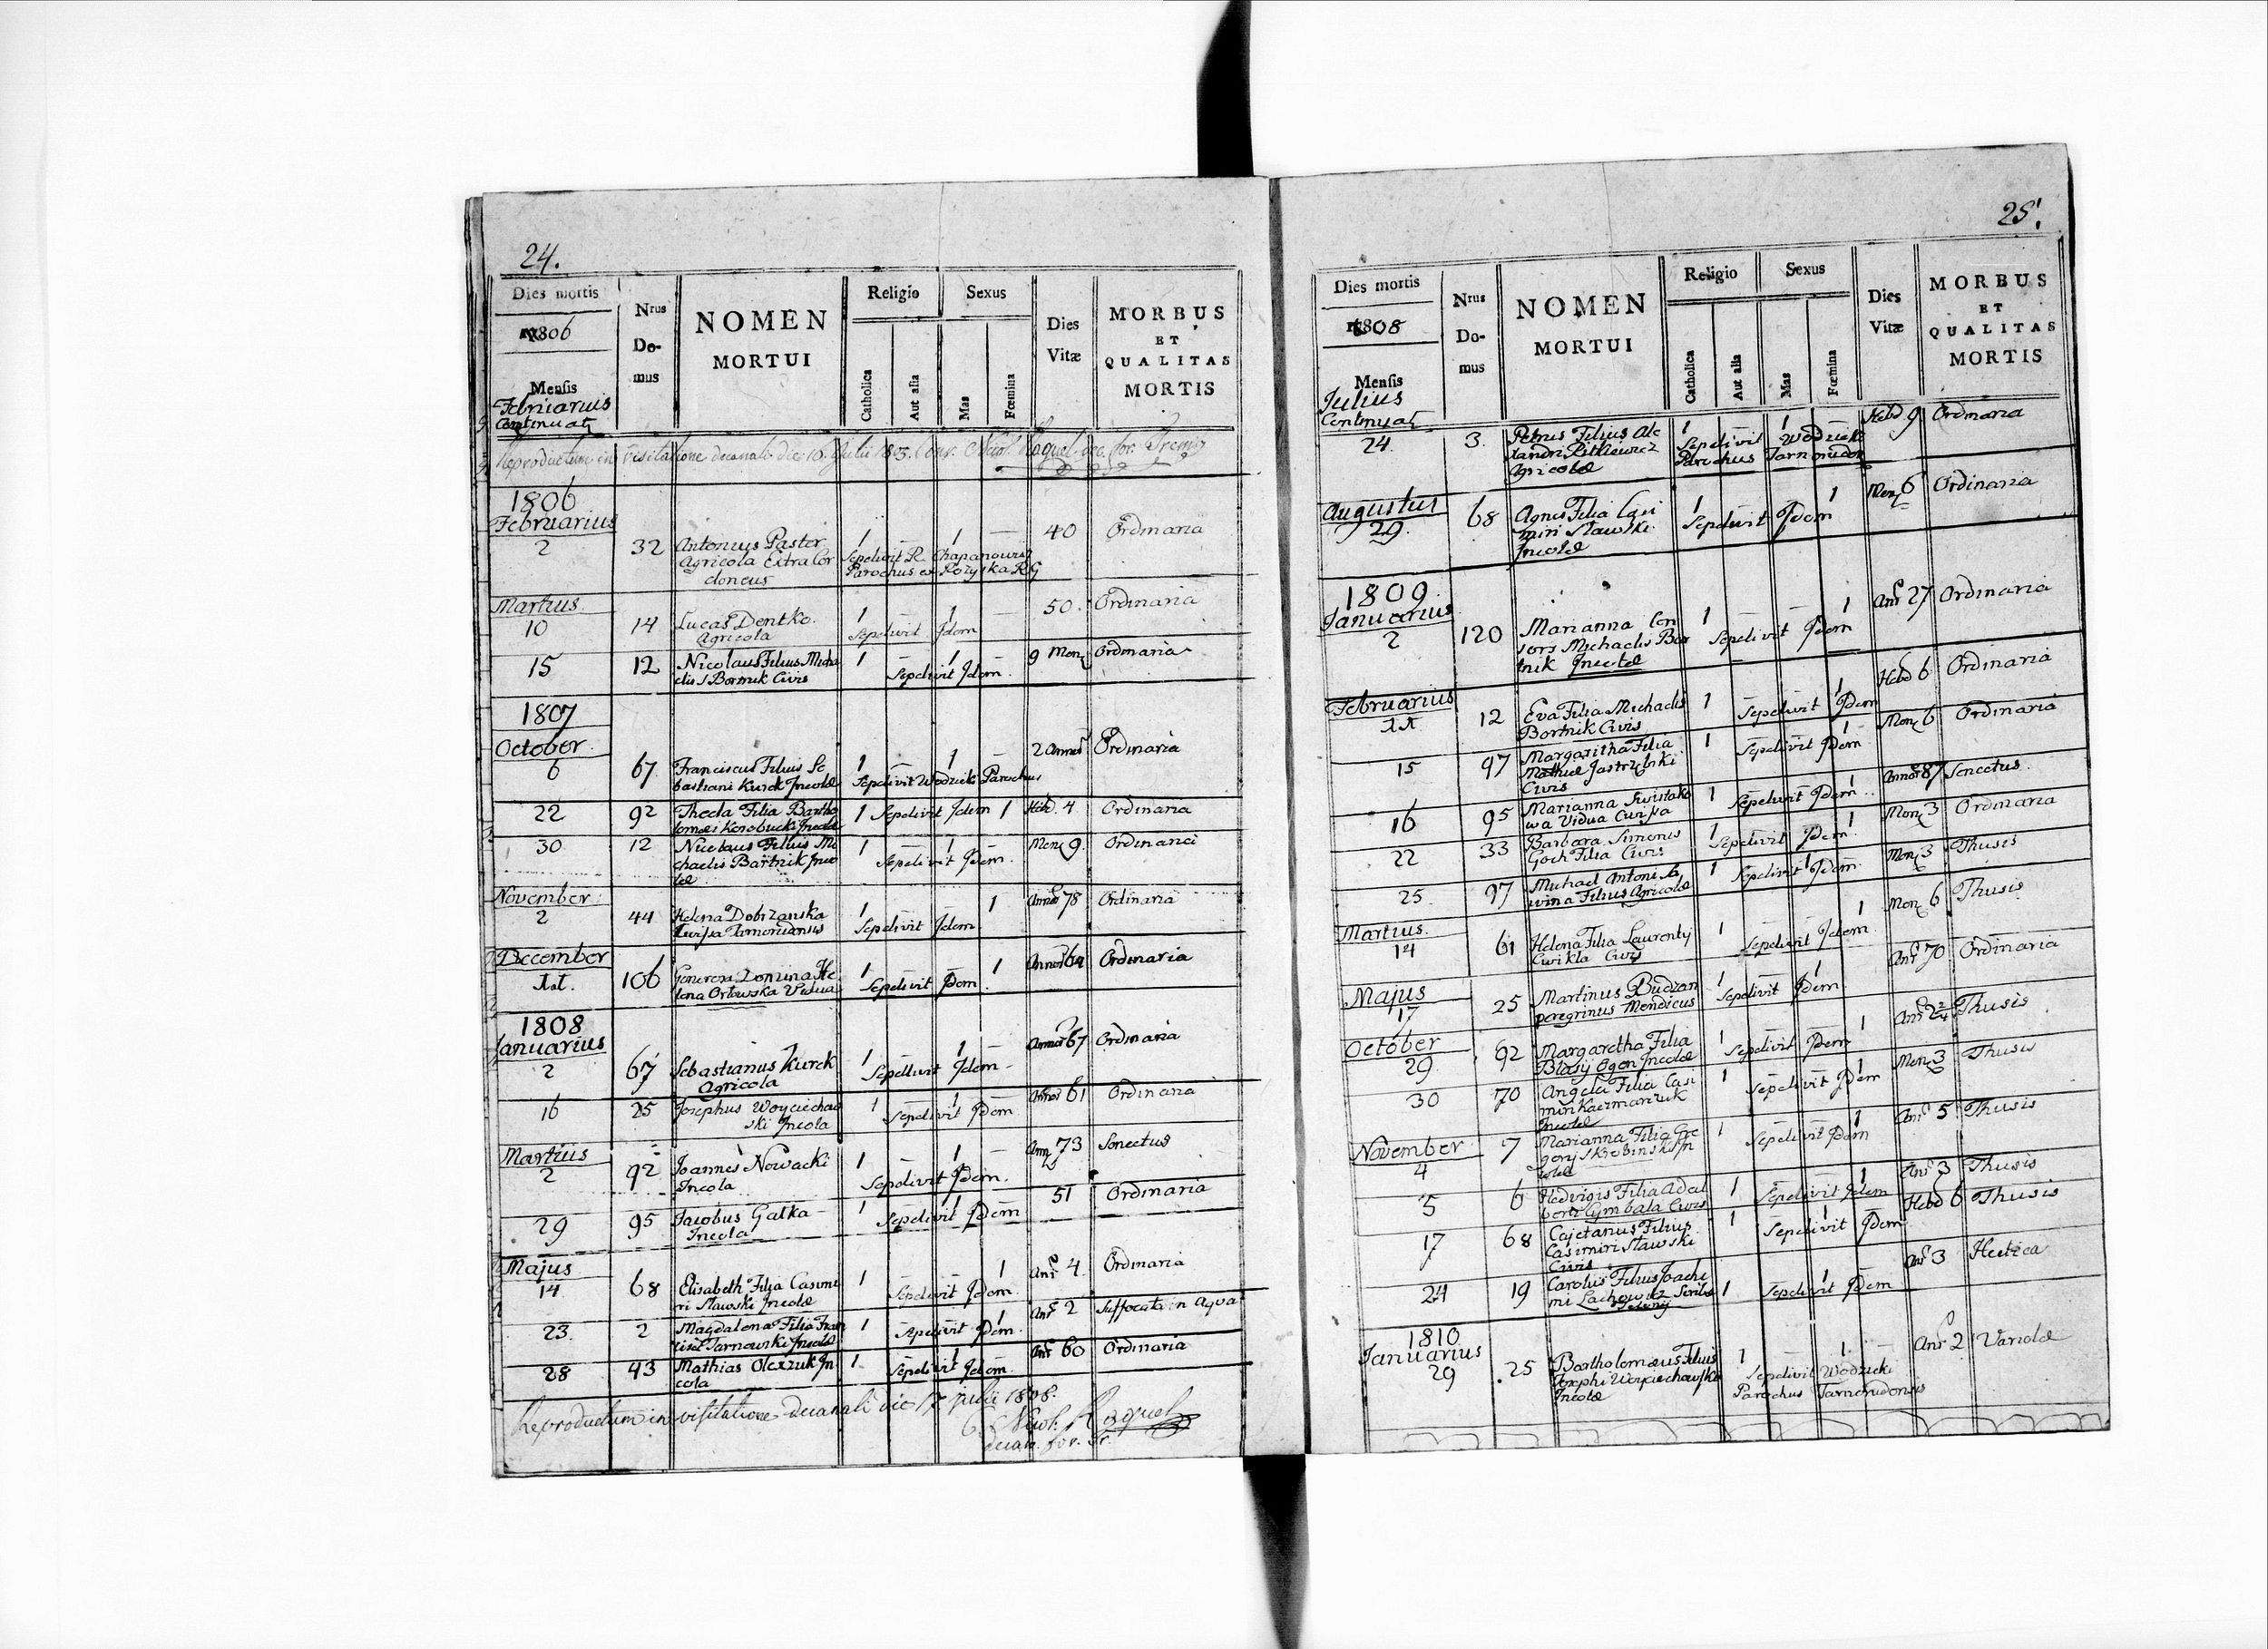 24.
Dies mortis
1806
Mensis
Februarius
Continuat
Nrus
Do-
mus
NOMEN
MORTUI
Religio
Catholica
Aut alia
Sexus
Mas
Fœmina
Dies
Vitæ
MORBUS
ET
QUALITAS
MORTIS
Reproductum in visitatione decanali die 10. Julii 1805.
1806
Februarius
2 32 Antonius Pastor 1 — 1 — 40 Ordinaria
Agricola Extra Cor Sepelivit R. Chapanowicz
doneus Parochus ex Rożyska R G
Martius
10 14 Lucas Dentko 1 — 1 — 50. Ordinaria
Agricola Sepelivit Idem
15 12 Nicolaus Filius Micha 1 — 1 9 Men Ordinaria
elis Bortnik Civis Sepelivit Idem.
1807
October
6 67 Franciscus Filius Se 1 — 1 — 2 Annor Ordinaria
bastiani Kurek Incolæ Sepelivit Wodzicki Parochus
22 92 Thecla Filia Bartho 1 Sepelivit Idem 1 Hebd. 4 Ordinaria
lomæi Korobucki Incolæ
30 12 Nicolaus Filius Mi 1 — 1 Men 9. Ordinaria
chaelis Bartnik Inco Sepelivit Idem.
læ
November
2 44 Helena Dobrzanska 1 — 1 Annor 78 Ordinaria
Sepelivit Idem
December
1st. 106 Generosa Domina He 1 — 1 Annor 64 Ordinaria
lena Orłowska Vidua Sepelivit Idem
1808
Januarius
2 67 Sebastianus Kurek 1 — 1 Annor 67 Ordinaria
Agricola Sepellivit Idem
16 25 Josephus Woyciechow 1 — 1 Annor 61 Ordinaria
ski Incola Sepelivit Idem
Martius
2 92 Joannes Nowacki 1 — 1 — Ann 73 Senectus
Incola Sepelivit Idem.
29 95 Jacobus Gałka 1 — 1 51 Ordinaria
Incola Sepelivit Idem
Majus
14 68 Elisabeth Filia Casimi 1 — — 1 Anr 4 Ordinaria
ri Sławski Incolæ Sepelivit Idem.
23. 2 Magdalena Filia Fran 1 — 1 Anr 2 Suffocata in Aqua
cisci Tarnowski Incolæ Sepelivit Idem.
28 43 Mathias Olexzuk In 1 — 1 Anr 60 Ordinaria
cola Sepelivit Idem
Reproductum in visitatione decanali die 17 Julii 1808.
25.
Dies mortis
1808
Mensis
Julius
Continuat
Nrus
Do-
mus
NOMEN
MORTUI
Religio
Catholica
Aut alia
Sexus
Mas
Fœmina
Dies
Vitæ
MORBUS
ET
QUALITAS
MORTIS
24 3. Petrus Filius Ale 1 — 1 — Hebd 9 Ordinaria
xandri Pitkiewicz Sepelivit Wodzicki
Agricolæ Parochus Tarnorudon
Augustus
29. 68 Agnes Filia Casi 1 1 Men 6 Ordinaria
miri Sławski Sepelivit Idem
Incolæ
1809
Januarius
2 120 Marianna Con 1 — — 1 Anr 27 Ordinaria
sors Michaelis Bor Sepelivit Idem
tnik Incolæ
Februarius
11 12 Eva Filia Michaelis 1 — — 1 Hebd 6 Ordinaria
Bortnik Civis Sepelivit Idem
15 97 Margaritha Filia 1 — — 1 Men 6 Ordinaria
Mathiæ Jastrzębski Sepelivit Idem
Civis
16 95 Marianna Swistako 1 — — 1 Annor 87 Senectus.
wa Vidua Sepelivit Idem.
22 33 Barbara Simonis 1 — — 1 Men 3 Ordinaria
Goch Filia Civis Sepelivit Idem.
25 97 Michael Antoni Sa 1 — 1 Men 3 Thusis
wina Filius Agricolæ Sepelivit Idem.
Martius.
14 61 Helena Filia Laurenty 1 — 1 Men 6 Thusis
Cwikła Civis Sepelivit Idem
Majus
17 25 Martinus Budzan 1 — 1 Anr 70 Ordinaria
peregrinus Mendicus Sepelivit Idem
October
29 92 Margaretha Filia 1 — 1 Thusis
Blasij Ogon Incolæ Sepelivit Idem
30 70 Angela Filia Casi 1 — 1 Men 3 Thusis
miri Kaczmarczuk Sepelivit Idem
Incolæ
November
4 7 Marianna Filia Gre 1 — 1 Anr 5 Thusis
gorij Skrobinski In Sepelivit Idem
colæ
5 6 Hedvigis Filia Adal 1 — 1 Anr 3 Thusis
berti Cymbala Civis Sepelivit Idem
17 68 Cajetanus Filius 1 — Hebd 6 Thusis
Casimiri Sławski Sepelivit Idem
Civis
24 19 Carolus Filius Joachi 1 — 1 Anr 3 Hectica
mi Lachowicz Sepelivit Idem
1810
Januarius
29 25 Bartholomæus Filius 1 — 1 — Anr 2 Variolæ
Josephi Woyciechowski Sepelivit Wodzicki
Incolæ Parochus Tarnorudensis